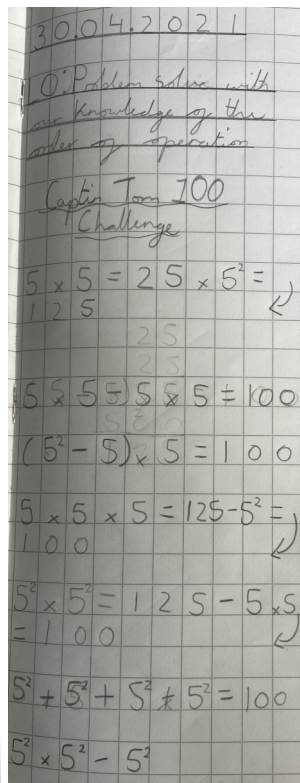 30.04.2021
LO: Problem solve with
our knowledge of the
order of operation
Captin Tom 100
Challenge
5 × 5 = 25 × 5² =
125
25
25
5 × 5 × 5 = 100
(5² - 5) × 5 = 100
5 × 5 × 5 = 125 - 5² =
100
5² × 5² = 125 - 5 × 5
= 100
5² + 5² + 5² + 5² = 100
5² × 5² - 5²